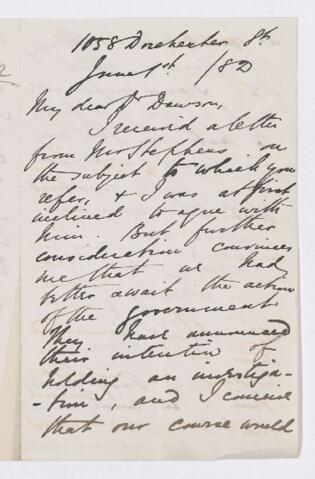 1058 Dorchester St.
June 1st /82
My dear Dr Dawson,
I received a letter
from Mr Stephens on
the subject to which you
refer, & I was at first
inclined to agree with
him. But further
consideration convinces
me that we had
better await the action
of the government
They have announced
their intention of
holding an investiga-
-tion, and I conceive
that our course would